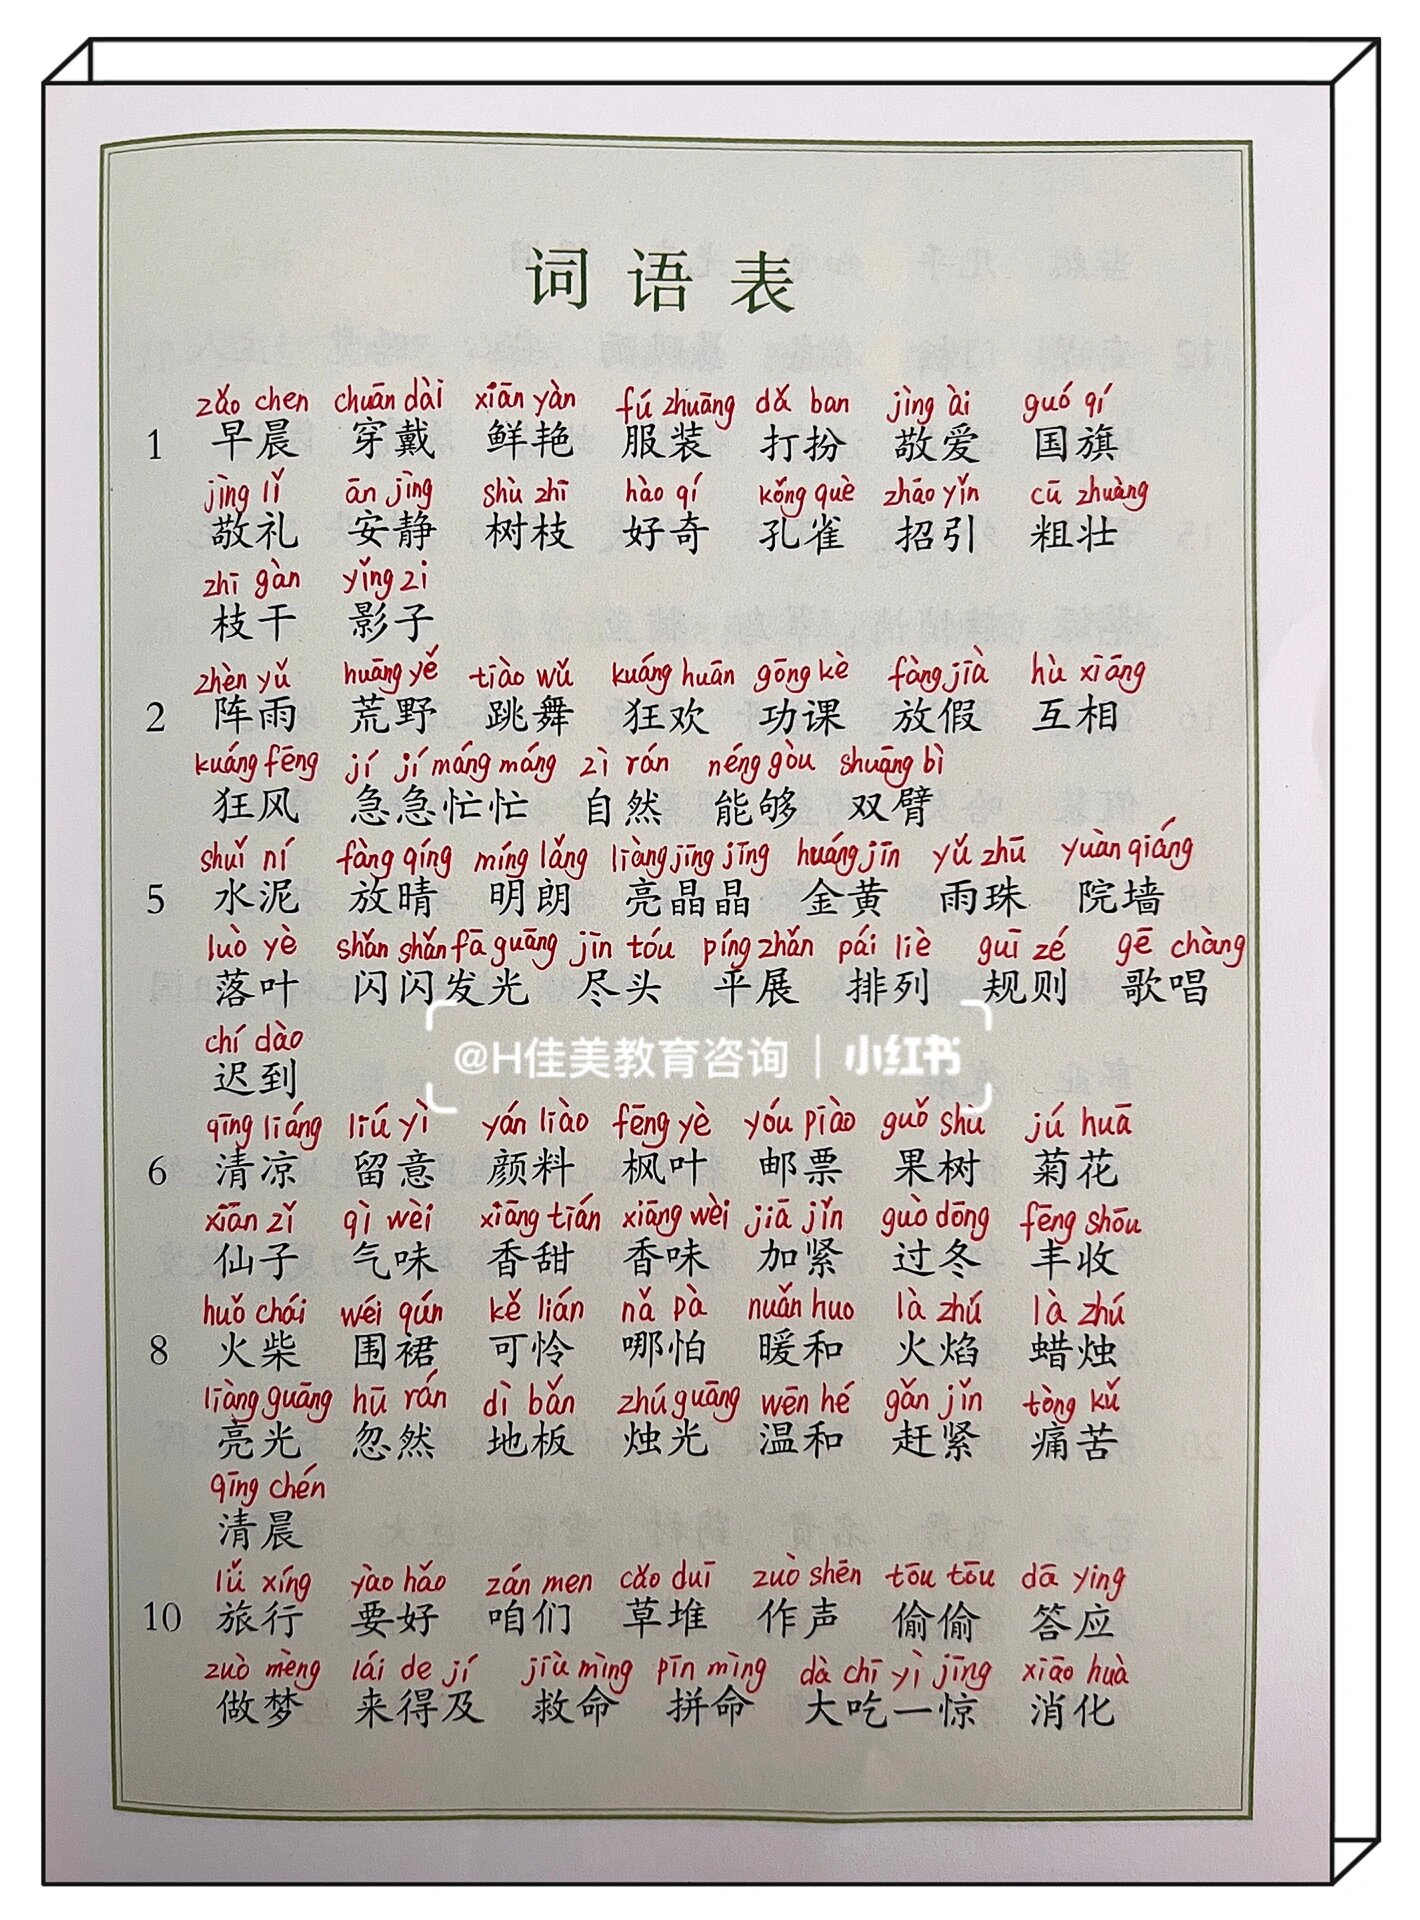 词语表
zǎo chen chuān dài xiān yàn fú zhuāng dǎ ban jìng ài guó qí
1 早晨 穿戴 鲜艳 服装 打扮 敬爱 国旗
jìng lǐ ān jìng shù zhī hào qí kǒng què zhāo yǐn cū zhuàng
敬礼 安静 树枝 好奇 孔雀 招引 粗壮
zhī gàn yǐng zi
枝干 影子
zhèn yǔ huāng yě tiào wǔ kuáng huān gōng kè fàng jià hù xiāng
2 阵雨 荒野 跳舞 狂欢 功课 放假 互相
kuáng fēng jí jí máng máng zì rán néng gòu shuāng bì
狂风 急急忙忙 自然 能够 双臂
shuǐ ní fàng qíng míng lǎng liàng jīng jīng huáng jīn yǔ zhū yuàn qiáng
5 水泥 放晴 明朗 亮晶晶 金黄 雨珠 院墙
luò yè shǎn shǎn fā guāng jìn tóu píng zhǎn pái liè guī zé gē chàng
落叶 闪闪发光 尽头 平展 排列 规则 歌唱
chí dào
迟到
@H佳美教育咨询 | 小红书
qīng liáng liú yì yán liào fēng yè yóu piào guǒ shù jú huā
6 清凉 留意 颜料 枫叶 邮票 果树 菊花
xiān zǐ qì wèi xiāng tián xiāng wèi jiā jǐn guò dōng fēng shōu
仙子 气味 香甜 香味 加紧 过冬 丰收
huǒ chái wéi qún kě lián nǎ pà nuǎn huo là zhú là zhú
8 火柴 围裙 可怜 哪怕 暖和 火焰 蜡烛
liàng guāng hū rán dì bǎn zhú guāng wēn hé gǎn jǐn tòng kǔ
亮光 忽然 地板 烛光 温和 赶紧 痛苦
qīng chén
清晨
lǚ xíng yào hǎo zán men cǎo duī zuò shēn tōu tōu dā ying
10 旅行 要好 咱们 草堆 作声 偷偷 答应
zuò mèng lái de jí jiù mìng pīn mìng dà chī yì jīng xiāo huà
做梦 来得及 救命 拼命 大吃一惊 消化